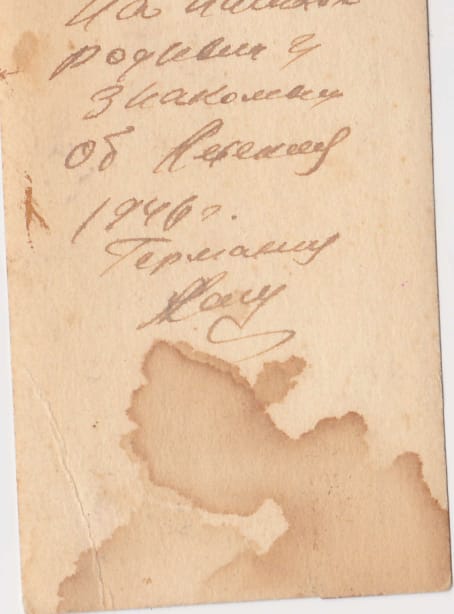 На память
родным и
знакомым
об
1946 г.
Германия